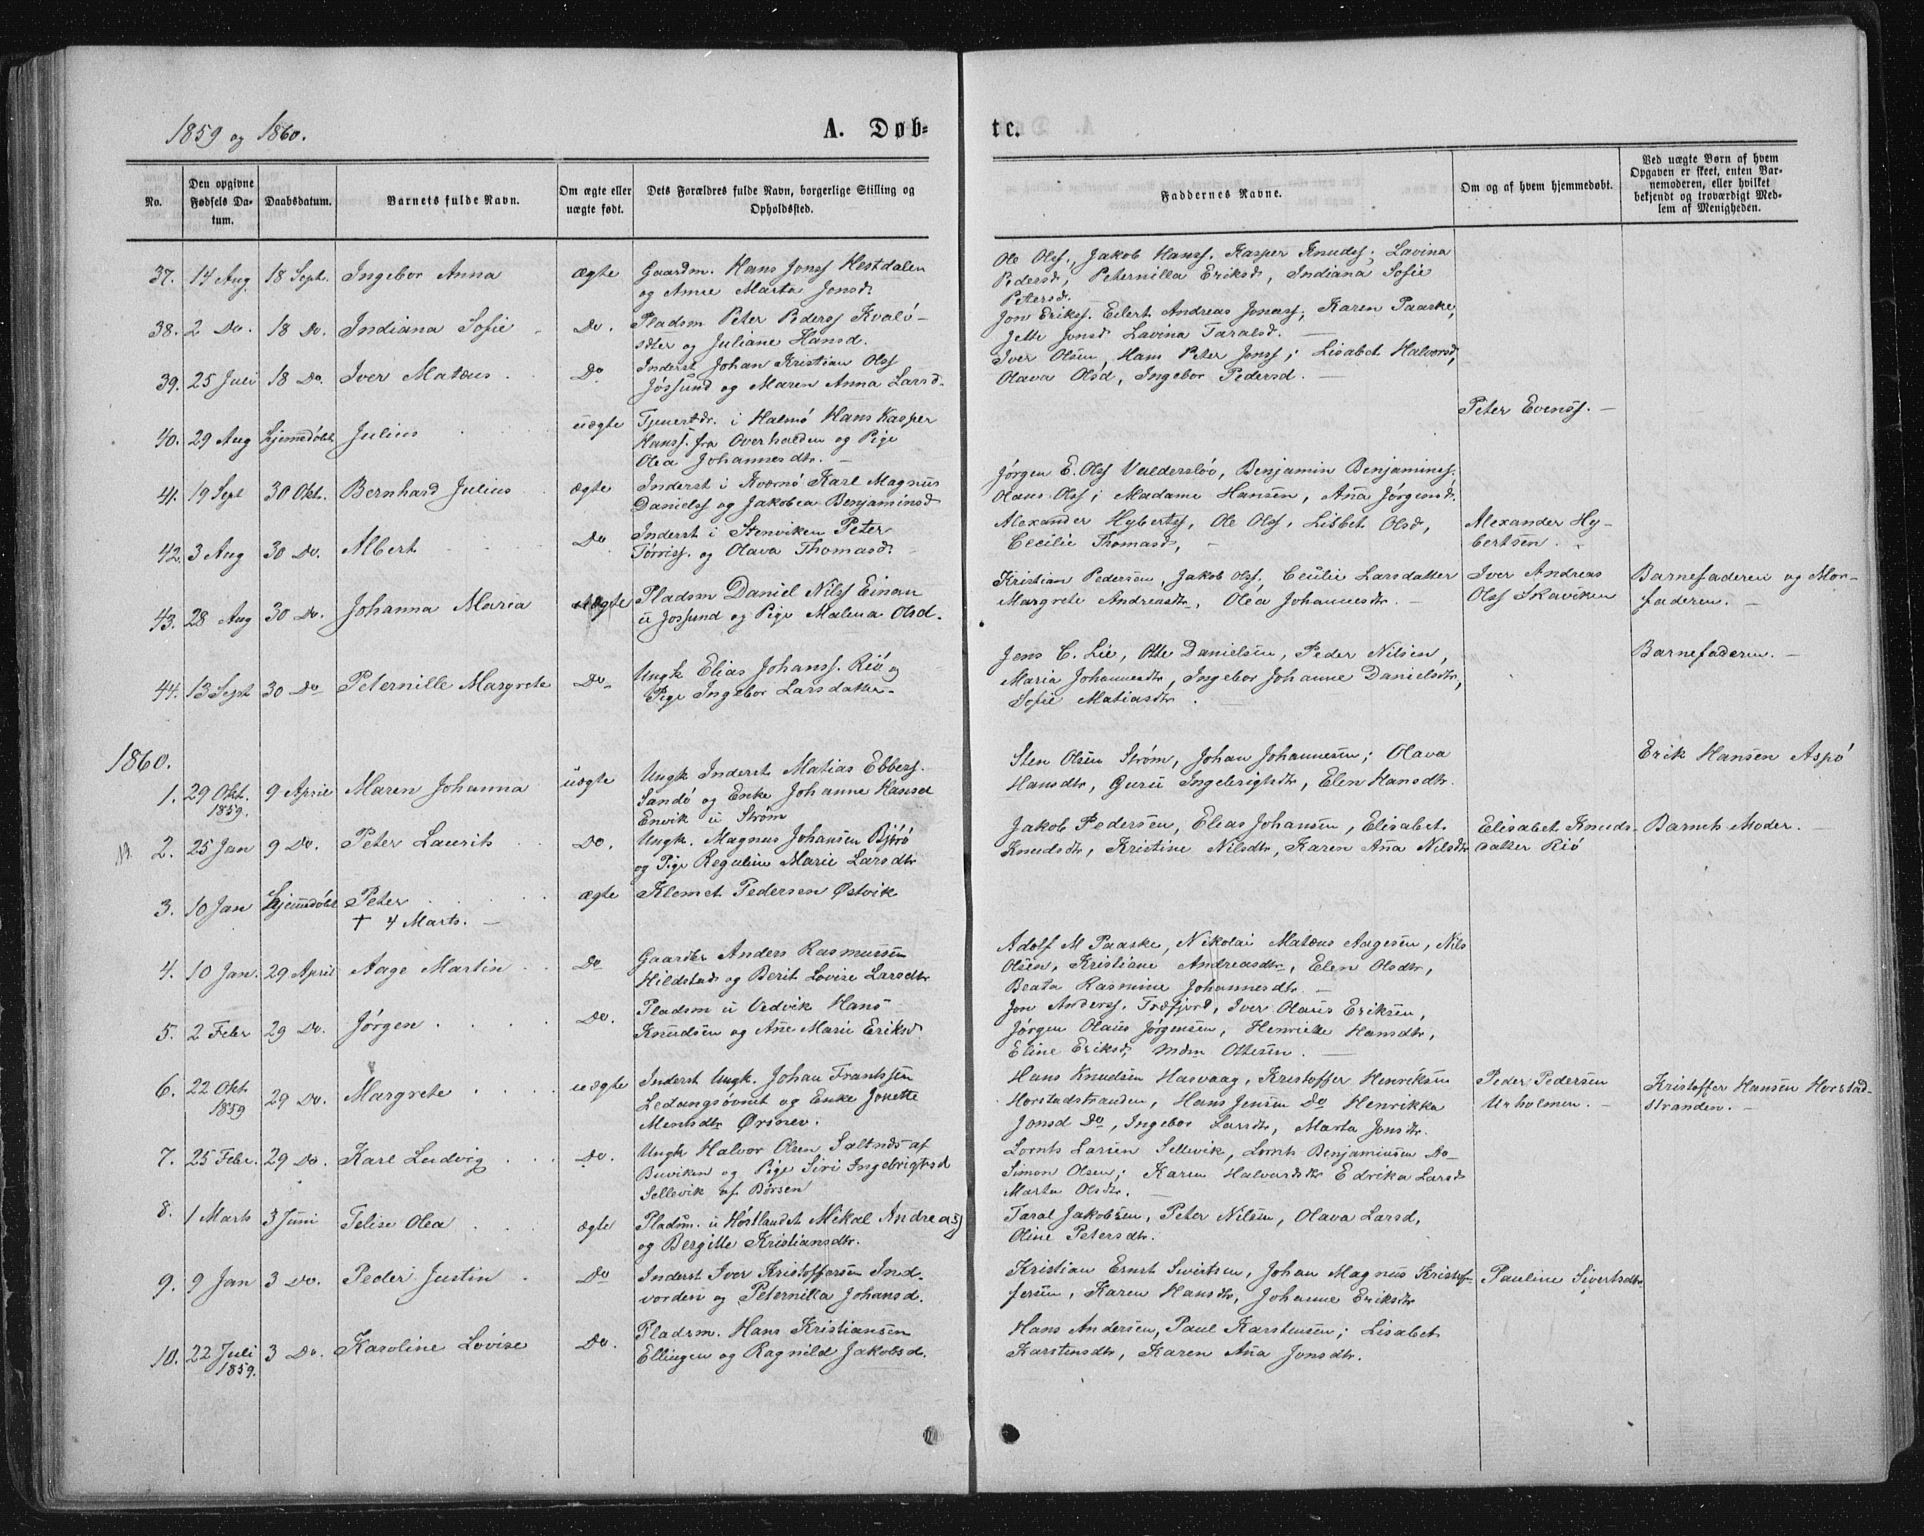 1859 og 1860.
A. Døb-
te.
No.
Den opgivne Fødsels Da-
tum.
Daabsdatum.
Barnets fulde Navn.
Om ægte eller
uægte født.
Dets Forældres fulde Navn, borgerlige Stilling og
Opholdssted.
Faddernes Navne.
Om og af hvem hjemmedøbt.
Ved uægte Børn af hvem
Opgaven er skeet, enten Bar-
nemoderen, eller hvilket
bekjendt og troværdigt Med-
lem af Menigheden.
37. 14 Aug 18 Sept. Ingebor Anna ægte
Gaardm. Hans Jonss Hestdalen
og Anne Marta Jonsd.
Ole Olss, Jakob Hanss. Kasper Knuds; Lavina
Pedersd, Peternilla Eriksd, Indiana Sofie
Petersd.
38. 2 Do. 18 Do. Indiana Sofie Do.
Pladsm Peter Pederss Kvalö-
sæter og Juliane Hansd.
Jon Erikss. Eilert Andreas Jonass; Karen Paaske,
Jette Jonsd Lavina Taralsd.
39. 25 Juli 18 Do. Iver Matæus Do.
Inderst Johan Kristian Olss
Jössund og Maren Anna Larsd.
Iver Olsen, Hans Peter Jonss; Lisabet Halvorsd,
Olava Olsd, Ingebor Pedersd.
40. 29 Aug hjemedöbt Julius uægte
Tjenestdr. i Halmö Hans Kasper
Hanss. fra Overhalden og Pige
Olea Johannesdtr.
Peter Evenss.
41. 19 Sept 30 Okt. Bernhard Julius ægte
Inderst i Kvernö Karl Magnus
Danielss og Jakobea Benjaminsd
Jörgen E. Olss Valderslöv, Benjamin Benjamins.
Olaus Olss; Madame Hansen, Aña Jörgensd.
42. 3 Aug 30 Do. Albert Do
Inderst i Stenviken Peter
Törriss. og Olava Thomasd.
Alexander Hybertss, Ole Olss, Lisbet Olsd,
Cecilie Thomasd,
Alexander Hy-
bertsen.
43. 28 Aug 30 Do. Johanna Maria uægte
Pladsm Daniel Nilss Einan
u Jössund og Pige Malena Olsd.
Kristian Pedersen, Jakob Olss. Cecilie Larsdatter
Margrete Andreasdtr, Oléa Johannesdtr.
Iver Andreas
Olss Skaviken
Barnefaderen og Mor-
faderen.
44. 13 Sept 30 Do Peternille Margrete Do
Ungk Elias Johanss. Riö og
Pige Ingebor Larsdatter
Jens C. Lie, Otte Danielsen, Peder Nilsen,
Maria Johannesdtr, Ingebor Johanne Danielsdtr,
Sofie Matiasdtr.
Barnefaderen.
1860.
1. 29 Okt. 1859. 9 April Maren Johanna uægte
Ungk Inderst Matias Ebbers.
Sandö og Enke Johanne Hansd
Envik u Ström
Sten Olsen Ström, Johan Johannesen; Olava
Hansdtr, Guru Ingebrigtsdtr, Elen Hansdtr.
Erik Hansen Aspö
2. 25 Jan 9 Do. Peter Laurits Do.
Ungk. Magnus Johansen Björö
og Pige Reguline Marie Larsdtr
Jakob Pedersen, Elias Johansen, Elisabet
Knudsdtr, Kristine Nilsdtr, Karen Aña Nilsdtr
Elisabet Knuds-
datter Riö
Barnets Moder.
3. 10 Jan hjemmedöbt Peter ægte
† 4 Marts.
Klemet Pedersen Östvik
4. 10 Jan. 29 April Aage Martin Do
Gaardbr Anders Rasmussen
Hildstad og Berit Lovise Larsdtr
Adolf M Paaske, Nikolai Matæus Aagesen, Nils
Olsen, Kristiane Andreasdtr, Elen Olsdtr,
Beata Rasmine Johannesdtr
5. 2 Febr 29 Do. Jörgen Do.
Pladsm u Vedvik Hans
Knudsen og Ane Marie Eriksd.
Jon Anderss. Træfjord, Iver Olaus Eriksen,
Jörgen Olaus Jörgensen, Henriette Hansdtr,
Eline Eriksd, Mdm Ottesen.
6. 22 Okt 1859 29 Do. Margrete uægte
Inderst Ungk. Johan Frantssen
Ledangsövret og Enke Jonette
Mentsdtr Örsnev.
Hans Knudsen Hasvaag, Kristoffer Henriksen
Horstadstranden, Hans Jensen Do Henrikka
Jonsd Do, Ingebor Larsdtr, Marta Jonsdtr.
Peder Pedersen
Urholmen.
Kristoffer Hansen Horstad-
stranden.
7. 25 Febr. 29 Do. Karl Ludvig Do.
Ungk Halvor Olsen Saltnds af
Buviken og Pige Siri Ingebrigtsd
Sellevik af Börsen
Lornts Larsen Sellevik, Lornts Benjaminsen Do
Simon Olsen; Karen Halvardsdtr Edrika Larsd
Marta Olsdtr.
8. 1 Marts 3 Juni Felise Olea ægte
Pladsm. u Höstlandet Mikal Andreass
og Bergitte Kristiansdtr.
Taral Jakobsen, Peter Nilsen, Olava Larsd,
Oline Petersdtr.
9. 9 Jan 3 Do. Peder Justin Do
Inderst Iver Kristoffersen Ind-
vorden og Peternilla Johansd.
Kristian Ernst Sivertsen, Johan Magnus Kristof-
fersen, Karen Hansdtr, Johanne Eriksdtr
Pauline Sivertsdtr
10. 22 Juli 1859. 3 Do. Karoline Lovise Do.
Pladsm. Hans Kristiansen
Ellingen og Ragnild Jakobsd.
Hans Andersen, Paul Karstensen; Lisabet
Karstensdtr, Karen Aña Jonsdtr.